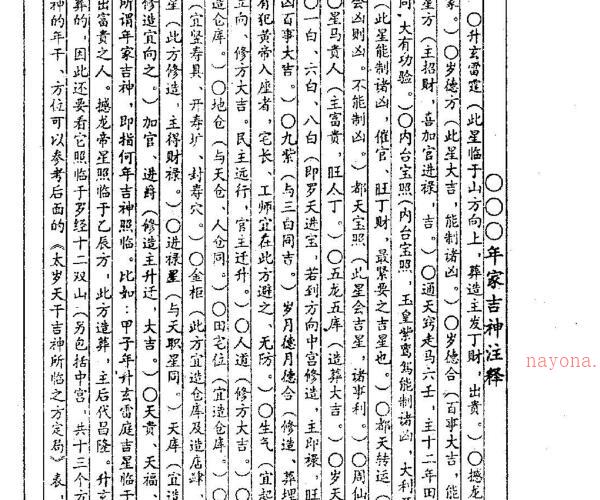 〇〇〇年家吉神注释
〇升玄雷霆（此星临于山方向上，葬造主发丁财，出贵。）〇撼龙
家。）〇岁德方（此星大吉，能制诸凶。）〇岁德合（百事大吉，能
星方（主招财，喜加官进禄，吉。）〇通天窍走马六壬，主十二年田
同，大有功验。〇内台宝照（内台宝照，玉皇紫鸾笃能制诸凶，大利
（此星能制诸凶，催官、旺丁财，最紧要之吉星也。）〇都天转运（
会凶则凶。不能制凶。）都天宝照（此星会吉星，诸事利。）〇周仙
〇星马贵人（主富贵，旺人丁。）〇五龙五库（造葬大吉。）〇岁天
〇一白、六白、八白（即罗天进宝，若到方向中宫修造，主即禄，旺
凶百事大吉。）〇九紫（与三白同吉。）岁月德月德合（修造、葬埋
有犯黄帝入座者，宅长、工师宜在此方避之，无防。）〇生气（宜起
立向、修方大吉。民主远行，官主迁升。）〇人道（修方大吉。）〇
造仓库。）〇地仓（与天仓、人仓同。）〇田宅位（宜造仓库。）〇
（宜竖寿县、开寿圹、封寿穴。）〇金柜（此方宜造仓库及造店肆、
星（此方修造，主得财禄。）〇进禄星（与天职星同。）天库（宜造
修造宜向之。）加官、进爵（修造主升迁，大吉。）〇天贵、天福、
所谓年家吉神，即指何年吉神照临。比如：甲子年升玄雷庭吉星临于
出富贵之人。撼龙帝星照临于乙辰方，此方造葬，主后代昌隆。升玄
葬的，因此还要看它照临于罗经十二双山（另包括中宫，共十三个方
神的年干、方位可以参考后面的《太岁天干吉神所临之方定局》表，
nayona.